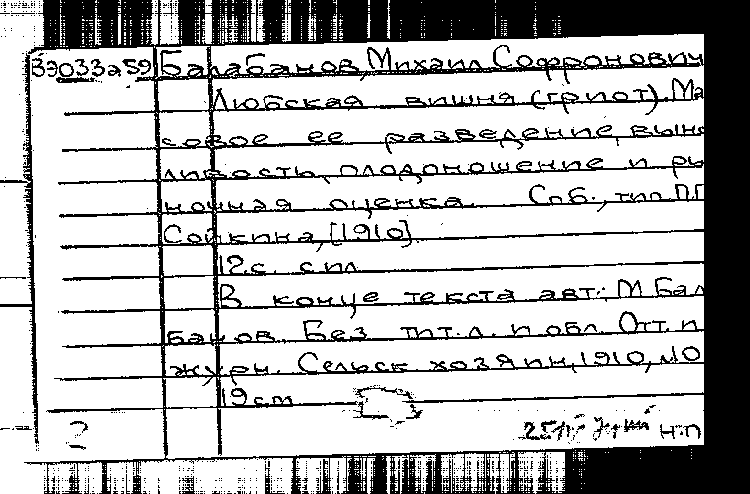 В9033а59 Балабанов, Михаил Софронович
Любская вишня (гриот). Ма
совое ее разведение, вынос
ливость, плодоношение и ры
ночная оценка. Спб., тип. П.П.
Сойкина, [1910]
12.с. с ил
В конце текста авт.: М Бал
банов. Без тит. л. и обл. Отт. и
журн. Сельск хозяин, 1910, №10
19 см
2 Н.П